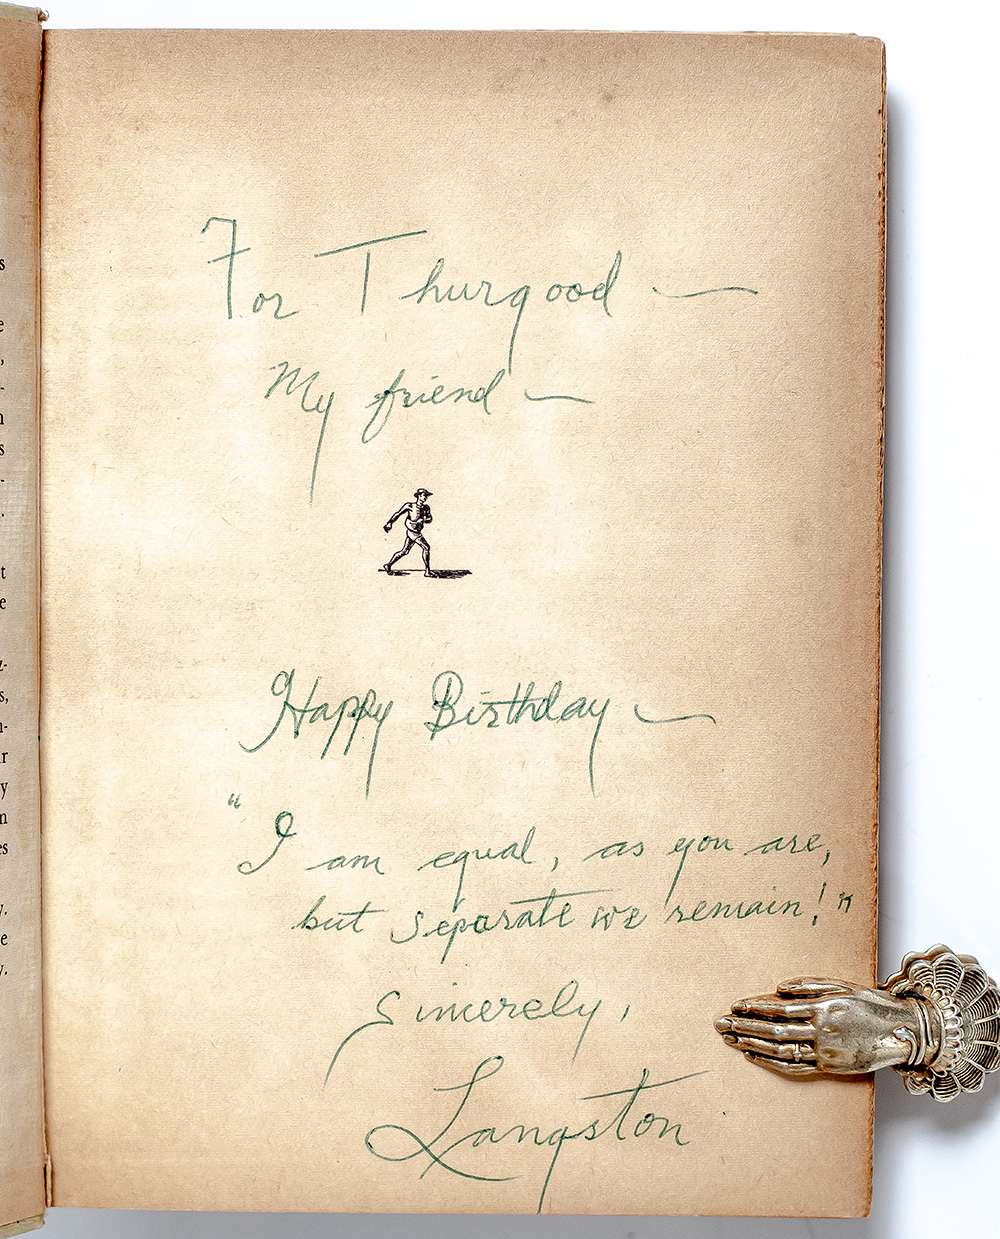 For Thurgood —
My friend —
Happy Birthday —
"I am equal, as you are,
but separate we remain!"
Sincerely,
Langston